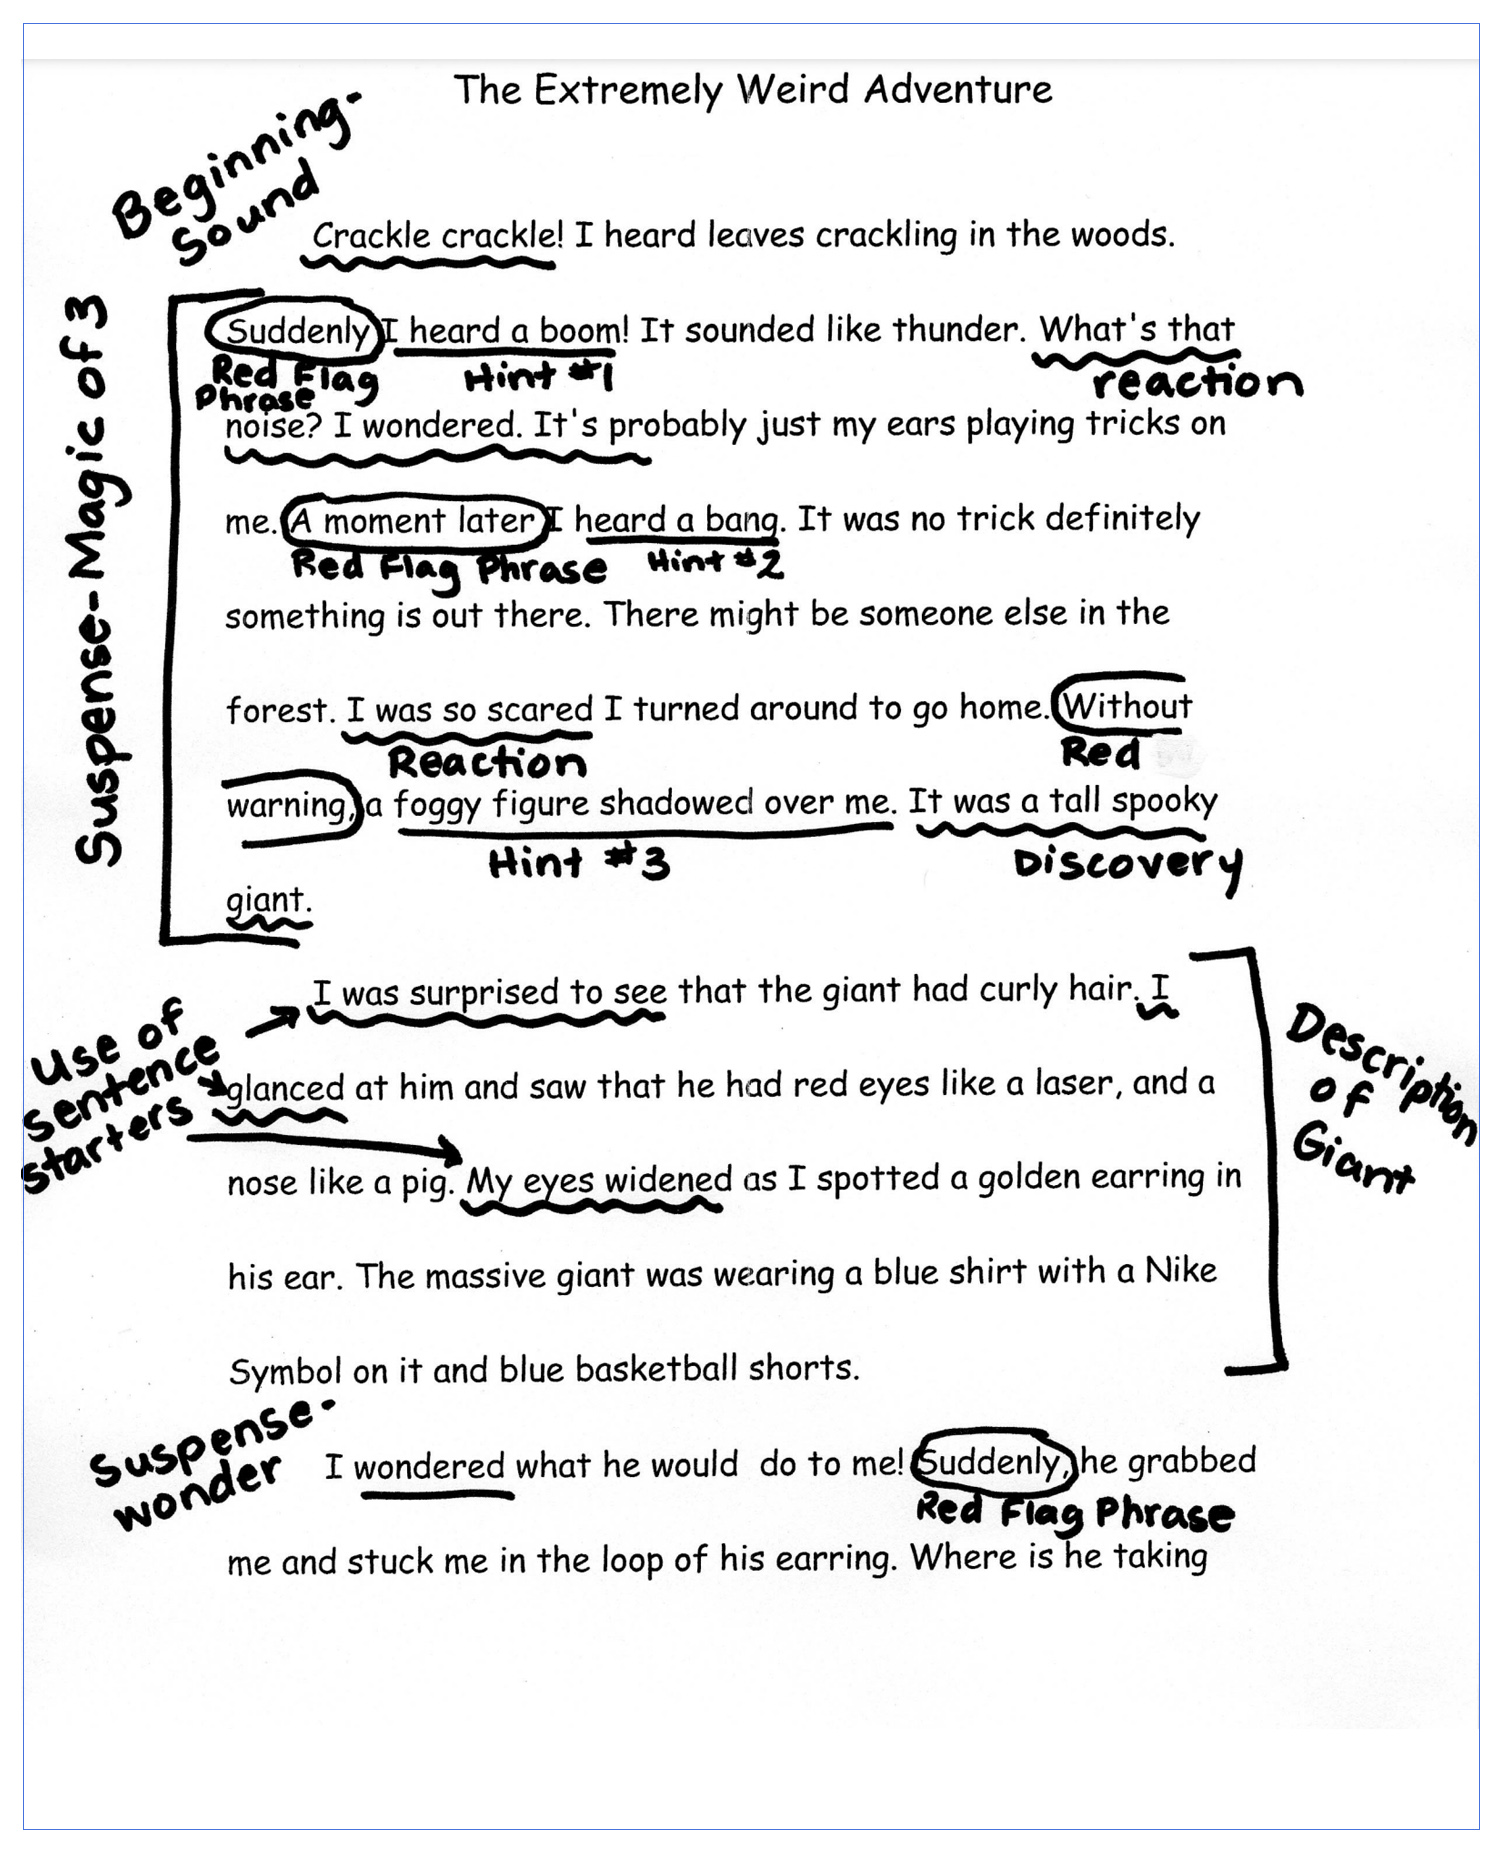 The Extremely Weird Adventure
Beginning-
Sound
Crackle crackle! I heard leaves crackling in the woods.
Suspense-Magic of 3
Suddenly I heard a boom! It sounded like thunder. What's that
Red Flag Hint #1 reaction
Phrase
noise? I wondered. It's probably just my ears playing tricks on
me. A moment later I heard a bang. It was no trick definitely
Red Flag Phrase Hint #2
something is out there. There might be someone else in the
forest. I was so scared I turned around to go home. Without
Reaction Red
warning, a foggy figure shadowed over me. It was a tall spooky
Hint #3 Discovery
giant.
I was surprised to see that the giant had curly hair. I
Use of
sentence
starters
glanced at him and saw that he had red eyes like a laser, and a
Description
of
Giant
nose like a pig. My eyes widened as I spotted a golden earring in
his ear. The massive giant was wearing a blue shirt with a Nike
Symbol on it and blue basketball shorts.
Suspense-
wonder
I wondered what he would do to me! Suddenly, he grabbed
Red Flag Phrase
me and stuck me in the loop of his earring. Where is he taking